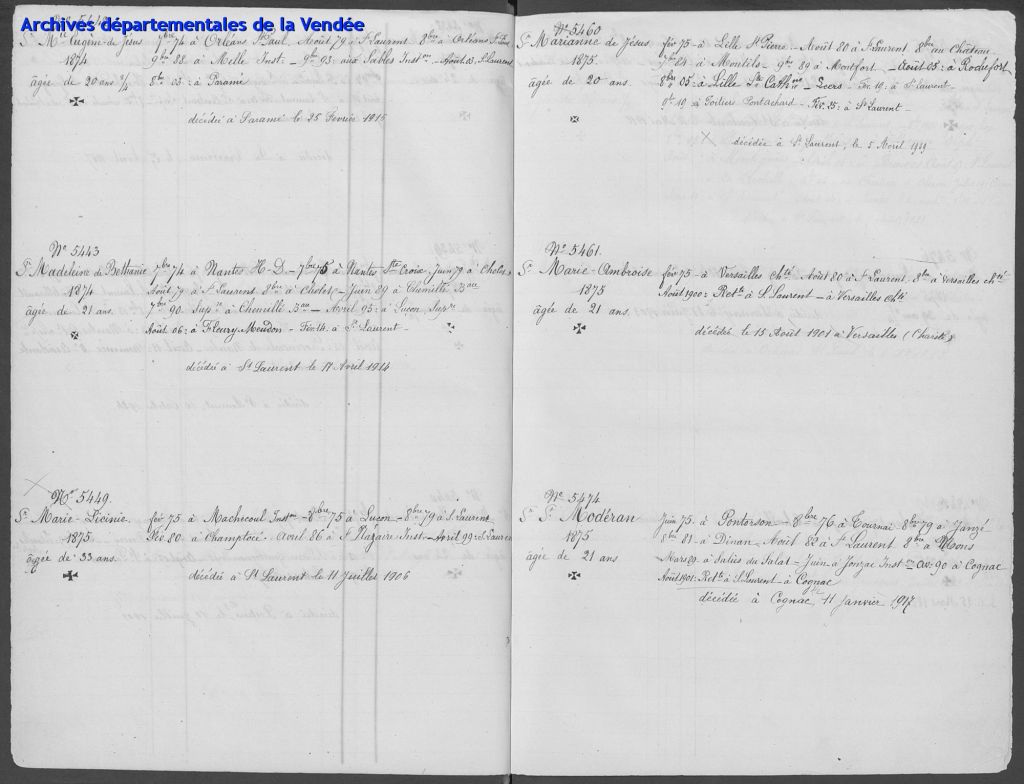 Archives départementales de la Vendée
Sr Mie Eugénie-de-Jésus 7bre 74 à Orléans St Paul. Août 79 à St Laurent 8bre à Orléans St
1874 9bre 88 à Melle Inst: - 9bre 03: aux Sables Inston - Août 05: St Laurent
âgée de 20 ans 8bre 05: à Paramé
décédée à Paramé le 25 Février 1915
No 5443
Sr Madeleine de Béthanie 7bre 74 à Nantes H-D. - 7bre 75 à Nantes Ste Croix Juin 79 à Cholet
1874 Août 79 à St Laurent 8bre à Cholet - Juin 89 à Chemillé Bau
âgée de 21 ans 7bre 90. Supre à Chemillé Bau - Avril 95: à Luçon Supre
Août 06: à Fleury-Meudon - à St Laurent -
décédée à St Laurent le 17 Avril 1914
No 5449.
Sr Marie-Licinie. fév 75 à Machecoul Inston - 8bre 75 à Luçon - 8bre 79 à S. Laurent
1875. 80 à Champtocé - Avril 86 à St Nazaire Inst - Avril 99: St Laurent
âgée de 33 ans.
décédée à St Laurent le 11 Juillet 1906
No 5460
Sr Marianne de Jésus fév 75 - à Lille St Pierre - Août 80 à St Laurent 8bre en Château
1875. 7bre 84 à Montils - 9bre 89 à Montfort - Août 05: à Rochefort
âgée de 20 ans. 8bre 05: à Lille Ste Cathne - Fév. 19: à St Laurent -
à Poitiers Pontachard - Fév. 25: à St Laurent -
décédée à St Laurent, le 5 Avril 1939
No 5461.
Sr Marie-Ambroise fév 75 - à Versailles chté Août 80 à St Laurent. 8bre à Versailles chté
1875 Août 1900: Rette à S. Laurent - à Versailles chté
âgée de 21 ans.
décédée le 15 Août 1901 à Versailles (Charité)
No 5474
Sr St Modéran Juin 75. à Pontorson - 8bre 76 à Tournai 8bre 79 à Janzé
1875 8bre 81 - à Dinan - Août 82 à St Laurent 8bre à Mons
âgée de 21 ans Mars 89 à Salies du Salat - Juin à Jonzac Inston 90 à Cognac
Août 1901: Rette à S. Laurent - à Cognac
décédée à Cognac 11 Janvier 1917